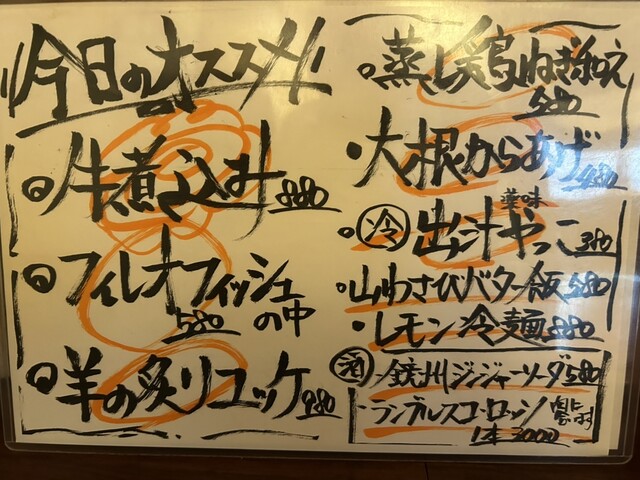 今日のオススメ!
牛煮込み 880
フィレオフィッシュ
の中 580
羊の炙りユッケ 980
・蒸し鶏ねぎ和え
580
・大根からあげ 480
薬味
・冷 出汁やっこ 380
・山わさびバター飯 580
・レモン冷麺 880
酒 ・銚州ジンジャーソーダ 580
・ランブルスコ・ロッソ
1本 3000